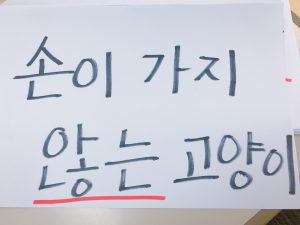 손이 가지
않는 고양이